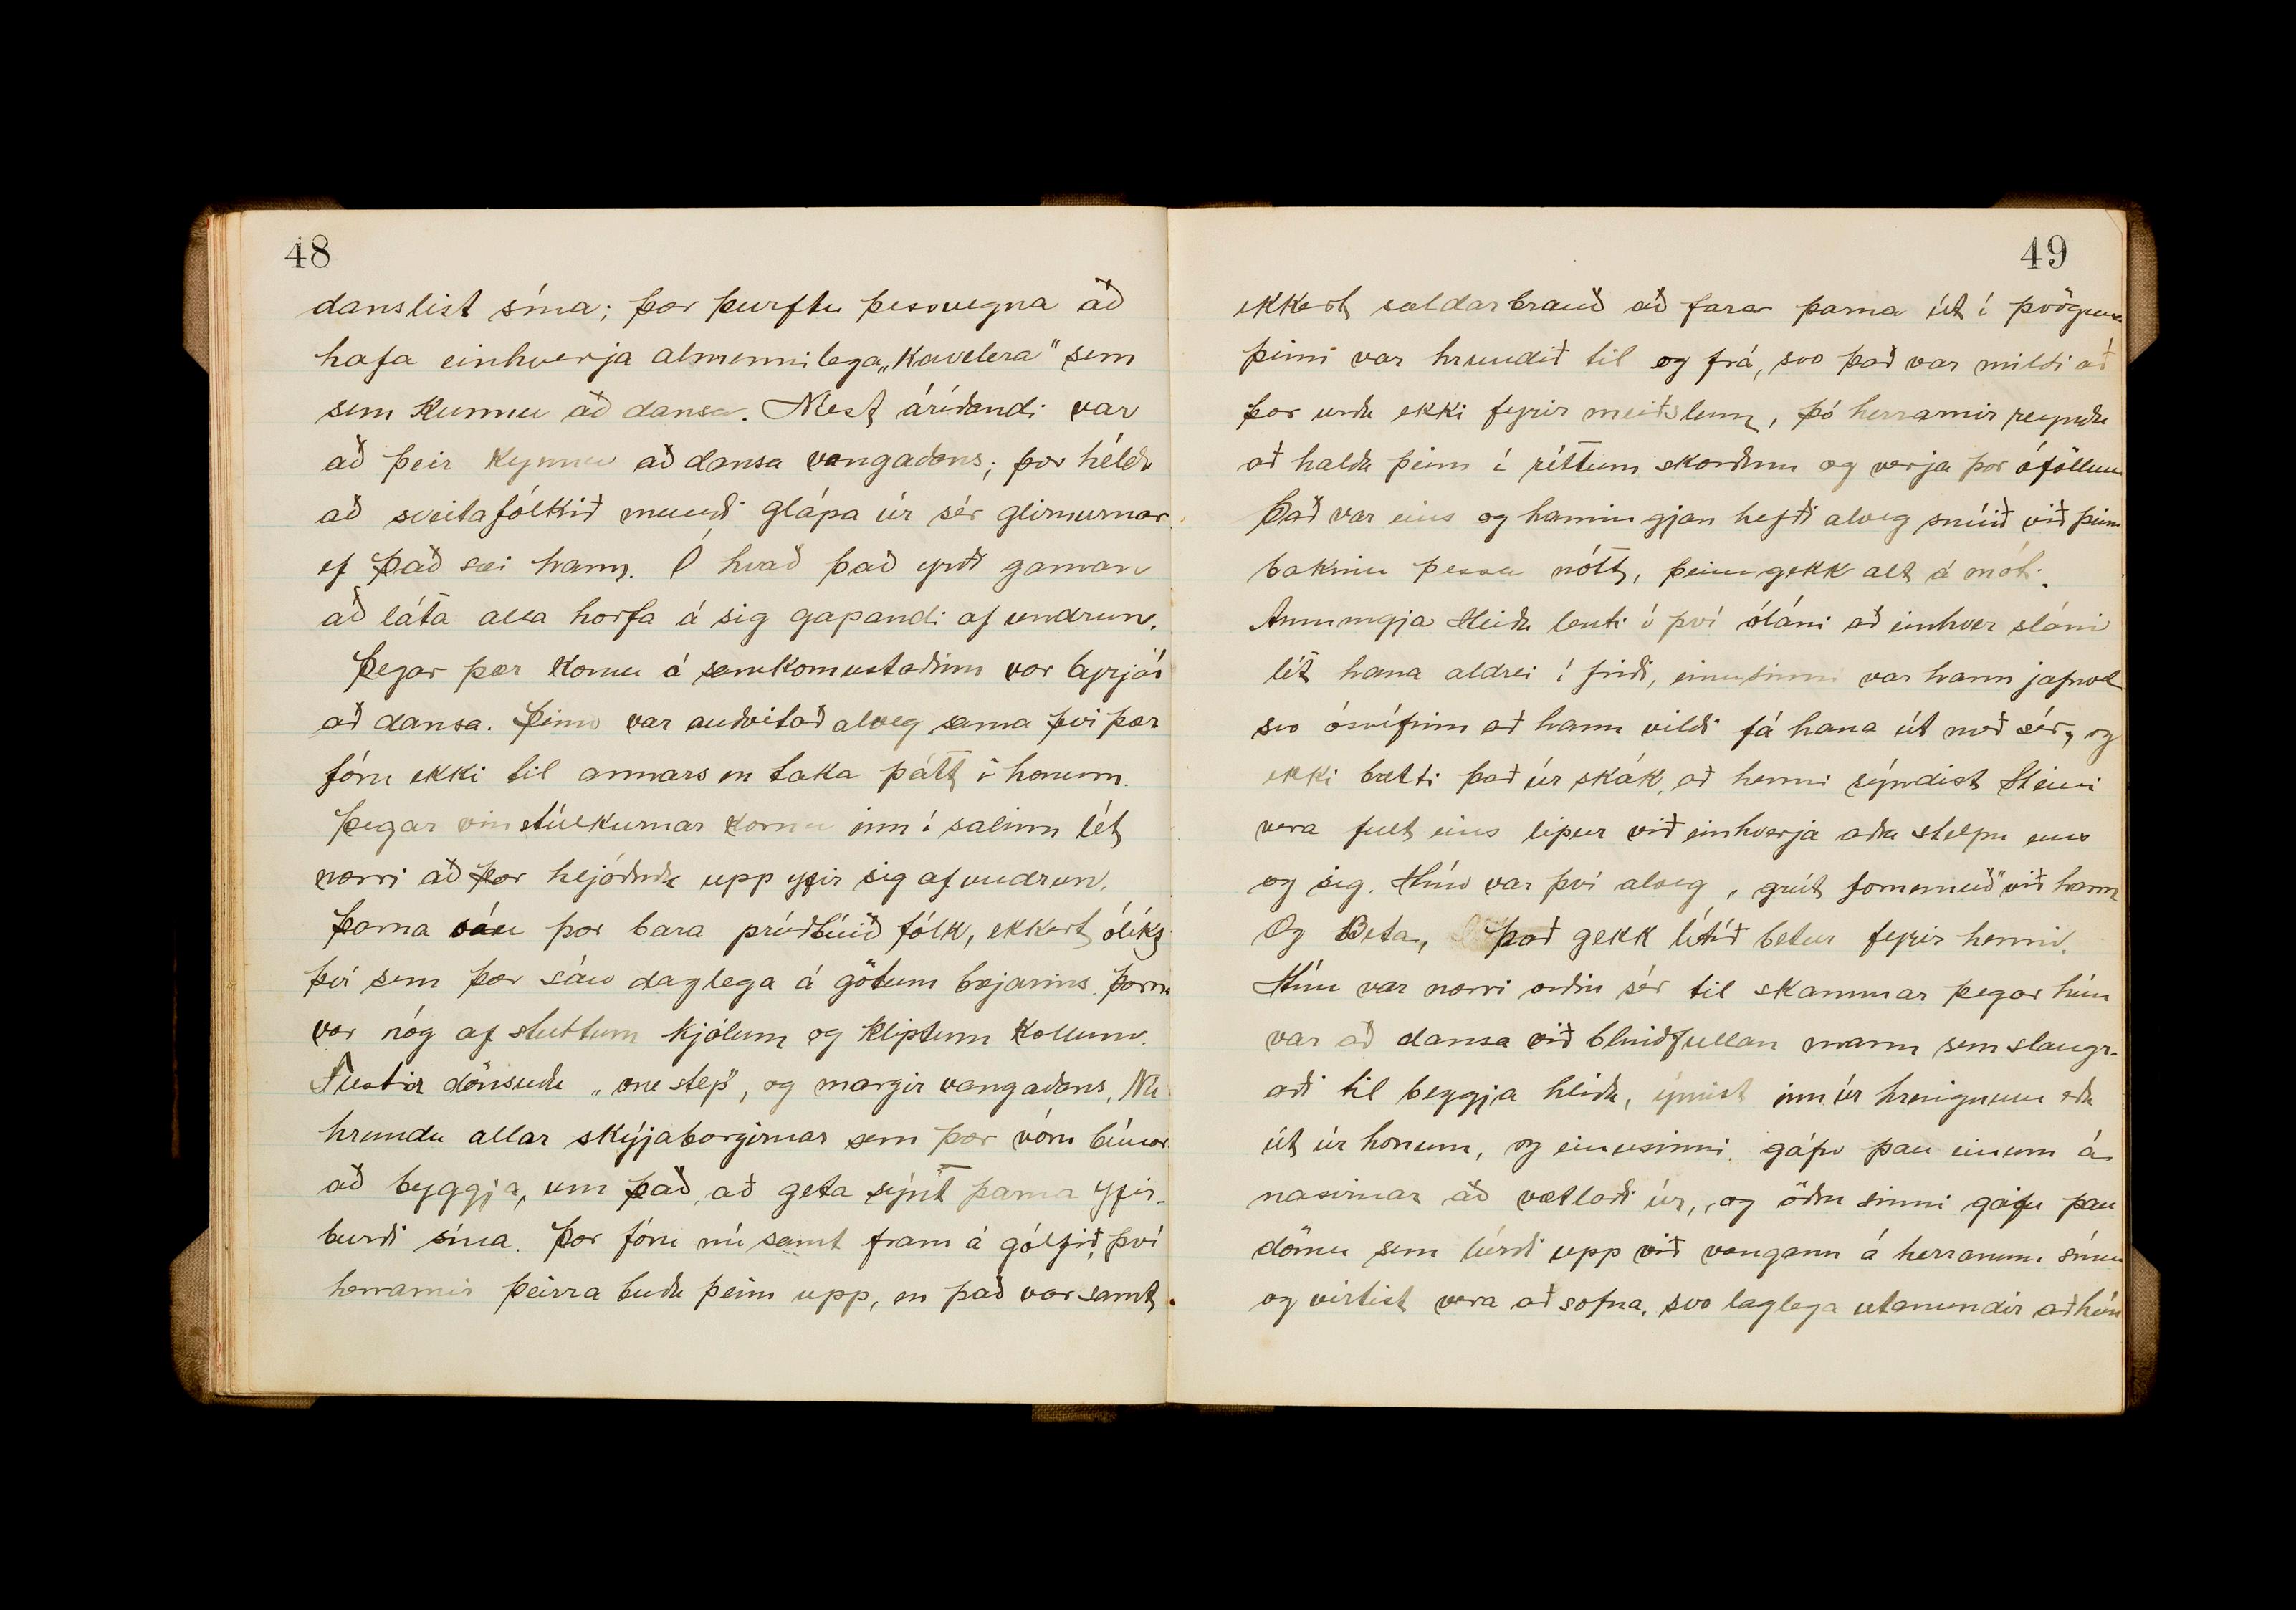 48
danslist sína; þær þurftu þessvegna að
hafa einhverja almennilega „Kavelera" sem
sem kunnu að dansa. Mest áríðandi var
að þeir kynnu að dansa vangadans; þær héldu
að sveitafólkið mundi glápa úr sér glirnurnar
ef það sæi hann. Ó hvað það yrði gaman
að láta alla horfa á sig gapandi af undrun.
Þegar þær komu á samkomustaðinn var byrjað
að dansa. Þeim var auðvitað alveg sama því þær
fóru ekki til annars en taka þátt í honum.
Þegar vinstúlkurnar komu inn í salinn lét
nærri að þær hljóðuðu upp yfir sig af undrun.
Þarna sáu þær bara prúðbúið fólk, ekkert ólíkt
því sem þær sáu daglega á götum bæjarins. Þarna
var nóg af stuttum kjólum og kliptum kollum.
Flestir dönsuðu „one step", og margir vangadans. Nú
hrundu allar skýjaborgirnar sem þær vóru búnar
að byggja, um það, að geta sýnt þarna yfir-
burði sína. Þær fóru nú samt fram á gólfið, því
herrarnir þeirra buðu þeim upp, en það var samt
49
ekkert sældarbrauð að fara þarna út í þvöguna
þeim var hrundið til og frá, svo það var mildi að
þær urðu ekki fyrir meiðslum, þó herrarnir reyndu
að halda þeim í réttum skorðum og verja þær áföllum
Það var eins og hamingjan hefði alveg snúið við þeim
bakinu þessa nótt, þeim gekk alt á móti.
Aumingja Heiða lenti í því óláni að einhver sláni
lét hana aldrei í friði, einusinni var hann jafnvel
svo ósvífinn að hann vildi fá hana út með sér, og
ekki bætti það úr skák, að henni sýndist Steini
vera fult eins lipur við einhverja aðra stelpu eins
og sig. Hún var því alveg „grút fornemuð" við hann
Og Beta, það gekk lítið betur fyrir henni.
Hún var nærri orðin sér til skammar þegar hún
var að dansa við blindfullan mann sem slangr-
aði til beggja hliða, ýmist inn úr hringnum eða
út úr honum, og einusinni gáfu þau einum á
nasirnar að vætlaði úr, og öðru sinni gáfu þau
dömu sem lúrði upp við vangann á herranum sínum
og virtist vera að sofna, svo laglega utanundir að hún